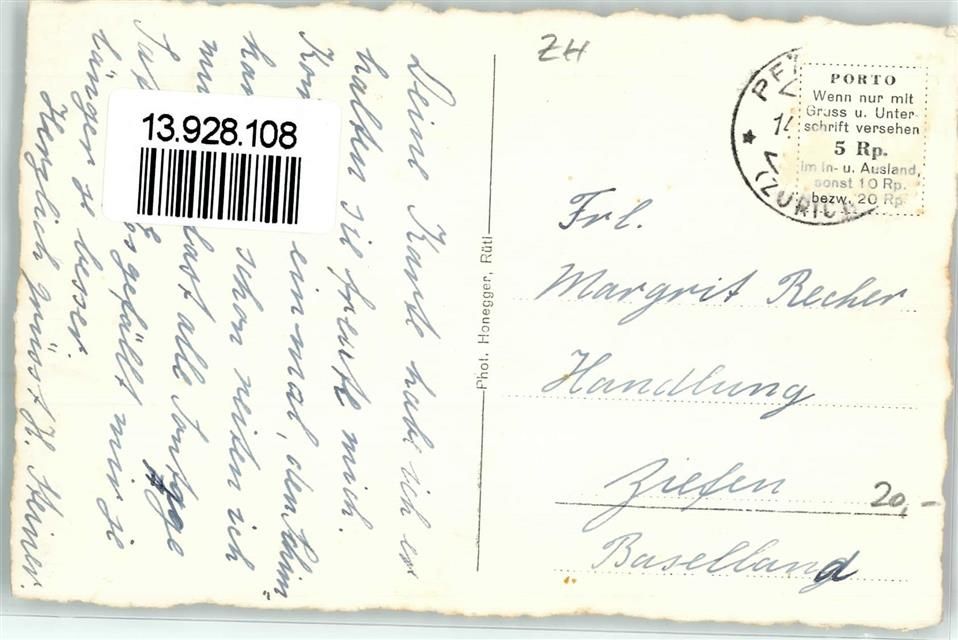 Deine Karte habe ich er
halten sie freute mich.
Kon einmal, denn
han schon reiten ich
mu fast alle
gefällt mir je
länger je besser.
Herzlich grüsst H.
13.928.108
Phot. Honegger, Rüti
ZH
(ZÜRICH
PORTO
Wenn nur mit
Gruss u. Unter-
schrift versehen
5 Rp.
im In- u. Ausland,
sonst 10 Rp.
bezw. 20 Rp.
Frl.
Margrit Recher
Handlung
Ziefen
20,-
Baselland